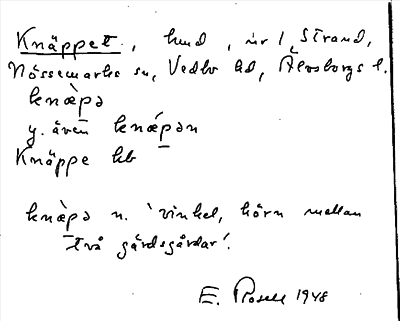 Knäppet, hmd, nr 1, Strand,
Nössemarks sn, Vedbo hd, Älvsborgs l.
knæ̀pə
y. även knǽpən
Knäppe kb
knæ̀pə n. 'vinkel, hörn mellan
två gärdsgårdar'.
E. Rosell 1948